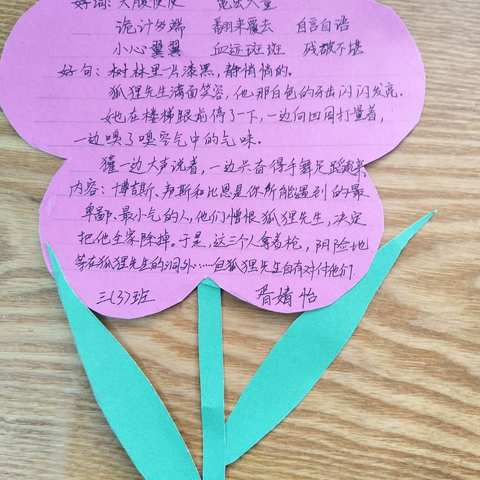 好词:大腹便便 宽宏大量
诡计多端 翻来覆去 自言自语
小心翼翼 血迹斑斑 残破不堪
好句:树林里一片漆黑,静悄悄的。
狐狸先生满面笑容,他那白色的牙齿闪闪发亮。
她在楼梯跟前停了下,一边向四周打量着,
一边嗅了嗅空气中的气味。
獾一边大声说着,一边兴奋得手舞足蹈起来
内容:博吉斯、邦斯和比恩是你所能遇到的最
卑鄙、最小气的人,他们憎恨狐狸先生,决定
把他全家除掉。于是,这三个人拿着枪,阴险地
等在狐狸先生的洞外……但狐狸先生自有对付他们
三(3)班 胥婧怡